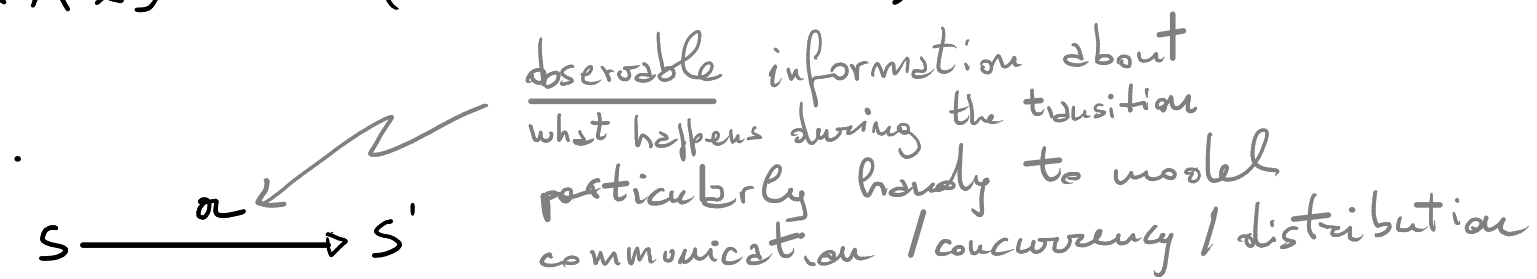 observable information about
what happens during the transition
particularly handy to model
communication / concurrency / distribution
a
S S'